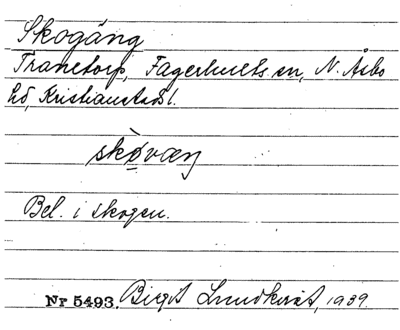 Skogäng
Tranetorp, Fagerhults sn, N. Åsbo
hd, Kristianstads l.
skòvæŋ
Bel. i skogen.
Nr 5493. Birgit Lundkvist, 1939.